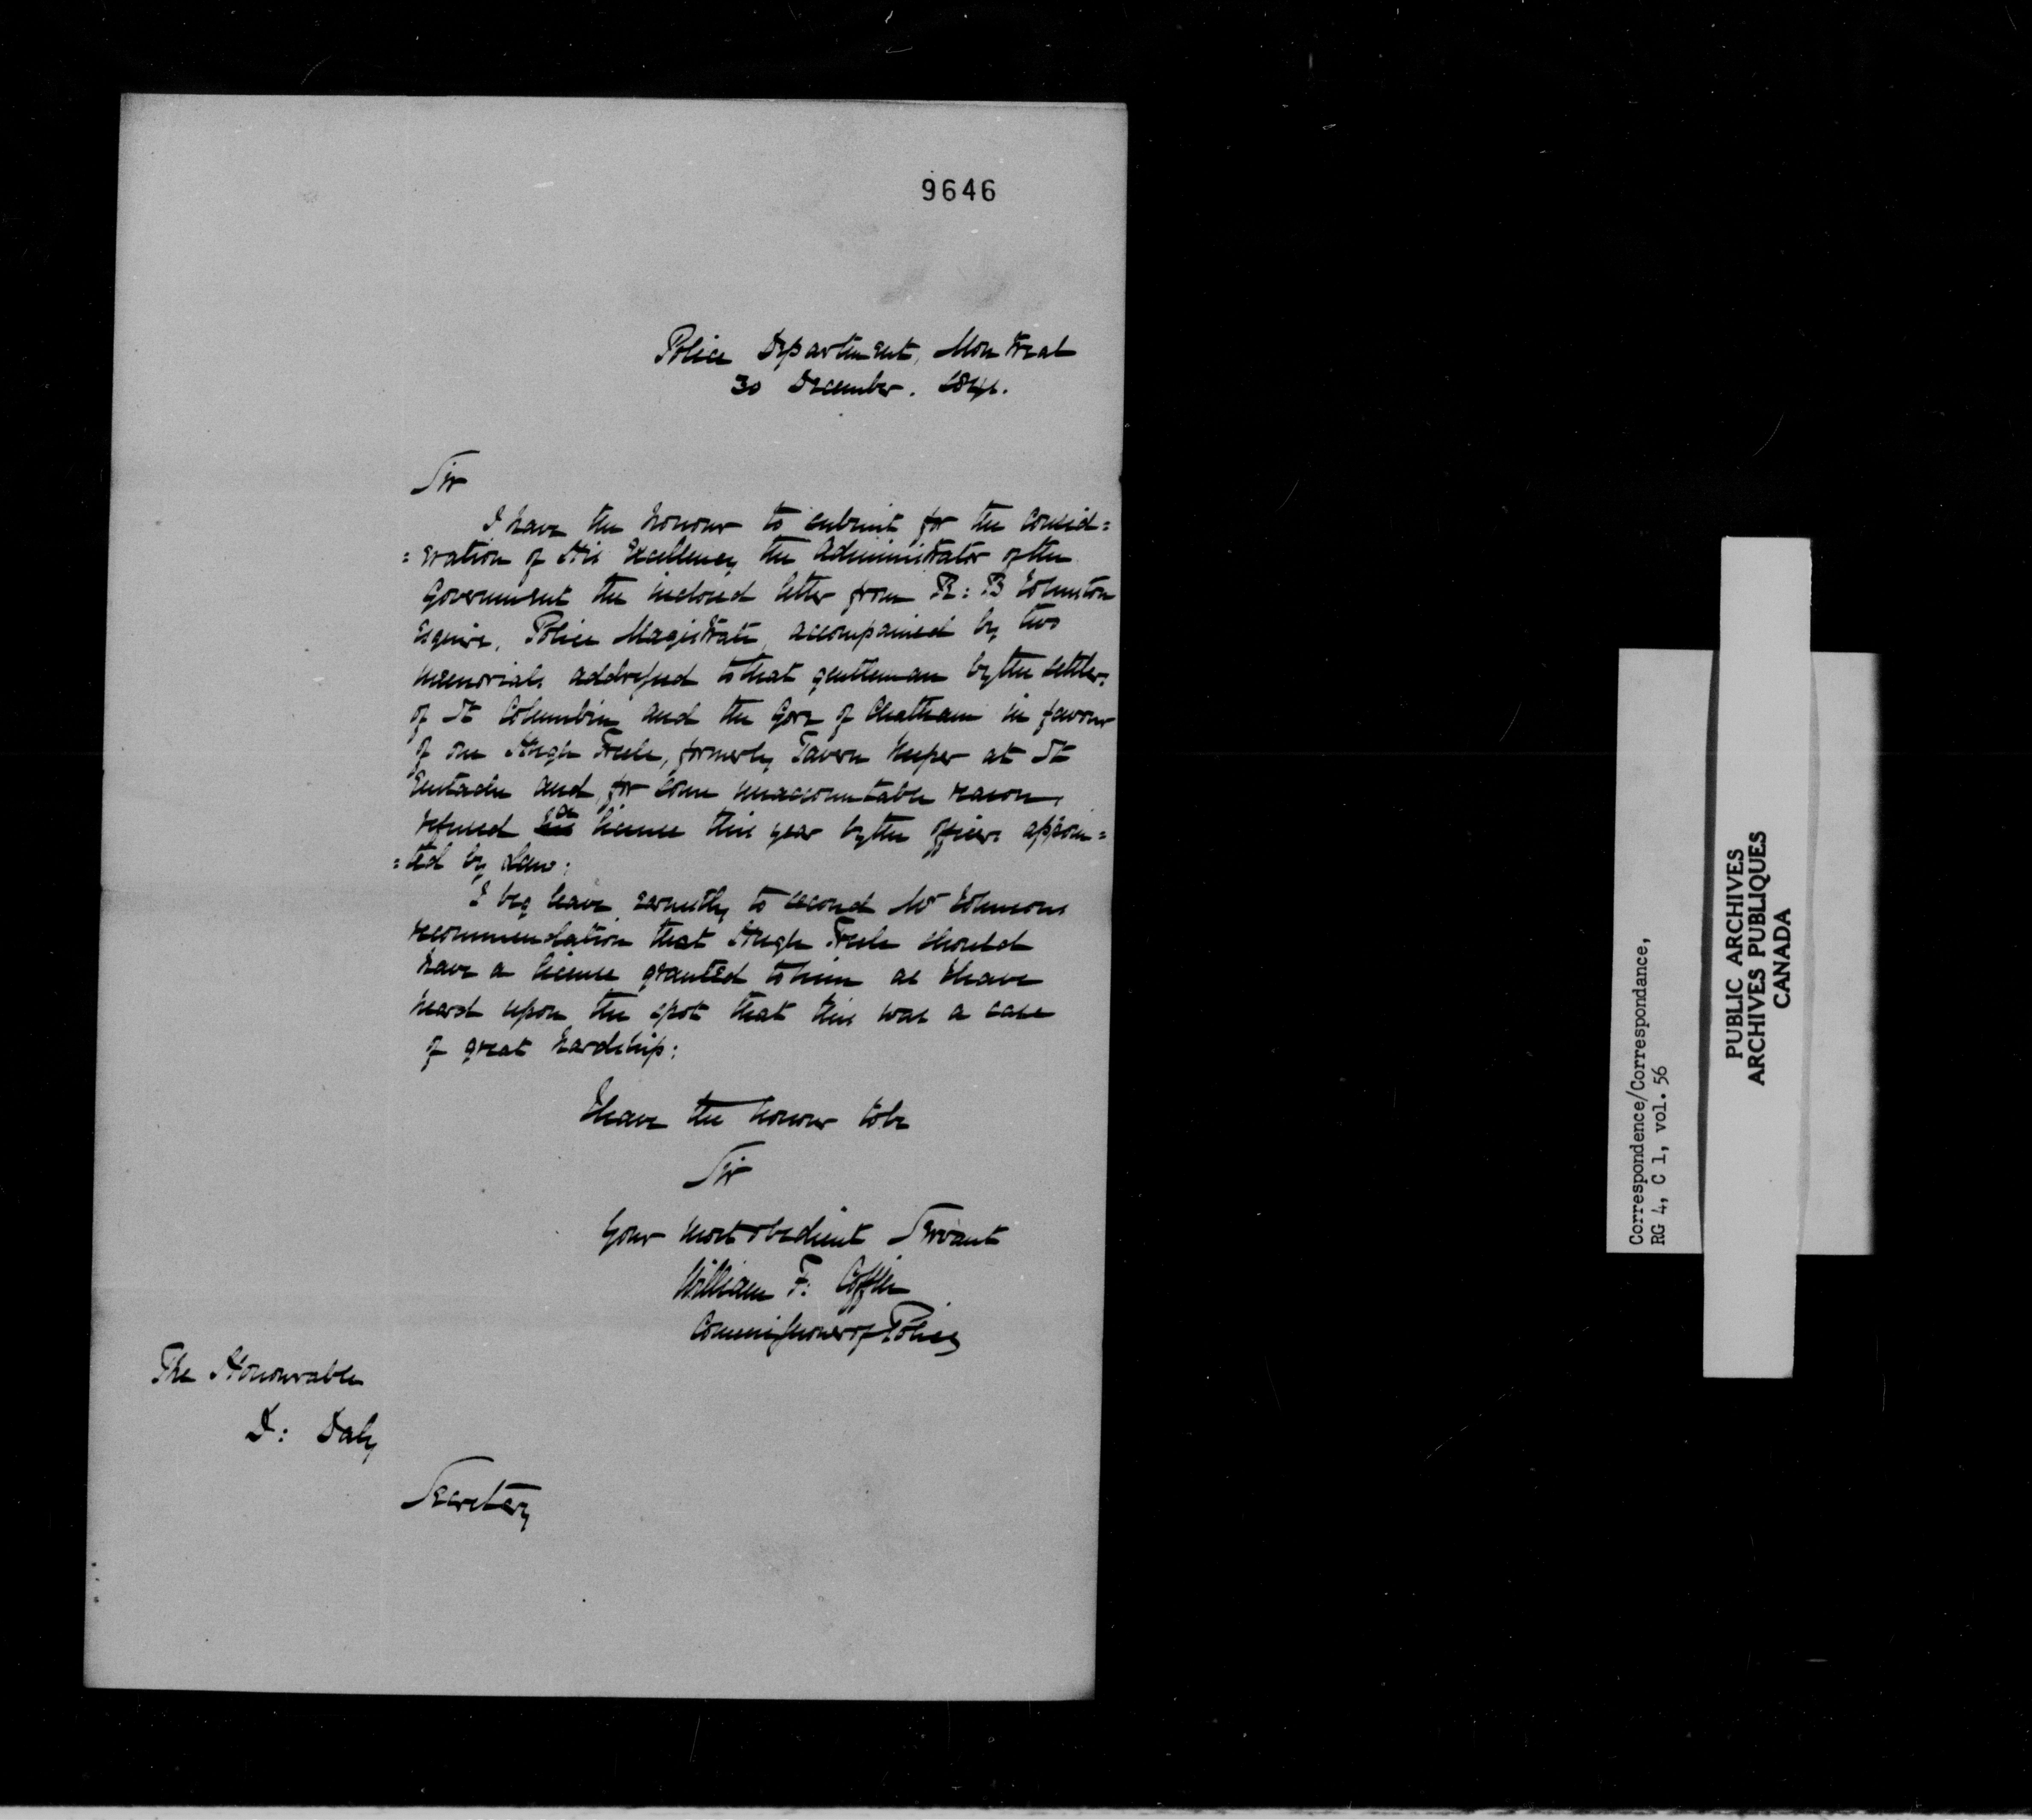 9646
Police Department, Montreal
30 December. 1841.
Sir
I have the honour to submit for the consid=
=eration of His Excellency the Administrator of the
Government the inclosed letter from R: B Johnston
Esquire, Police Magistrate, accompanied by two
memorials addressed to that gentleman by the settlers
of St Columbin and the Gore of Chatham in favour
of one Hugh Freele, formerly Tavern Keeper at St
Eustache and, for some unaccountable reason,
refused his a license this year by the officers appoin=
=ted by Law:
I beg leave earnestly to second Mr Johnsons
recommendation that Hugh Freele should
have a license granted to him as I have
heard upon the spot that this was a case
of great hardship:
I have the honour to be
Sir
Your most obedient Servant
William F: Coffin
Commissioner of Police
The Honourable
D: Daly
Secretary
Correspondence/Correspondance,
RG 4, C 1, vol. 56
PUBLIC ARCHIVES
ARCHIVES PUBLIQUES
CANADA